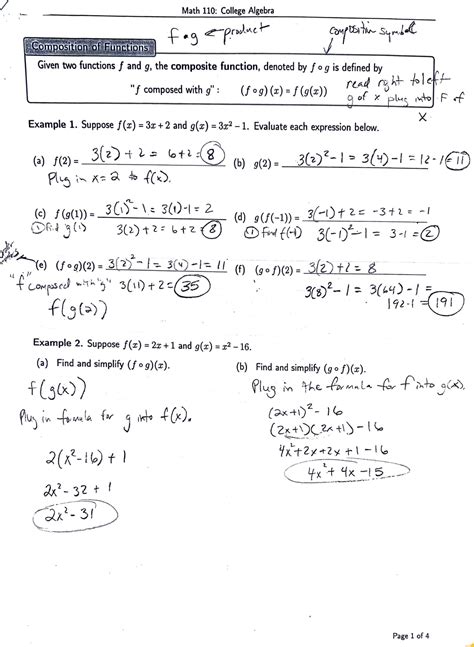 Math 110: College Algebra
f • g ← product
composition symbol
Composition of Functions
Given two functions f and g, the composite function, denoted by f∘g is defined by
"f composed with g" : (f∘g)(x) = f(g(x))
read right to left
g of x plug into F of
x
Example 1. Suppose f(x) = 3x + 2 and g(x) = 3x² − 1. Evaluate each expression below.
(a) f(2) = 3(2) + 2 = 6+2 = 8 (b) g(2) = 3(2)² − 1 = 3(4) − 1 = 12 - 1 = 11
Plug in x = 2 to f(x).
(c) f(g(1)) = 3(1)² - 1 = 3(1) - 1 = 2 (d) g(f(−1)) = 3(-1) + 2 = -3 + 2 = -1
① find g(1) 3(2) + 2 = 6 + 2 = 8 ① find f(-1) 3(-1)² - 1 = 3 - 1 = 2
(e) (f∘g)(2) = 3(2)² - 1 = 3(4) - 1 = 11 (f) (g∘f)(2) = 3(2) + 2 = 8
"f composed with g" 3(11) + 2 = 35 3(8)² - 1 = 3(64) - 1 =
192 - 1 = 191
f(g(2))
Example 2. Suppose f(x) = 2x + 1 and g(x) = x² − 16.
(a) Find and simplify (f∘g)(x). (b) Find and simplify (g∘f)(x).
f(g(x)) Plug in the formula for f into g(x).
Plug in formula for g into f(x). (2x+1)² - 16
(2x+1)(2x+1) - 16
2(x² - 16) + 1 4x² + 2x + 2x + 1 - 16
2x² - 32 + 1 4x² + 4x - 15
2x² - 31
Page 1 of 4